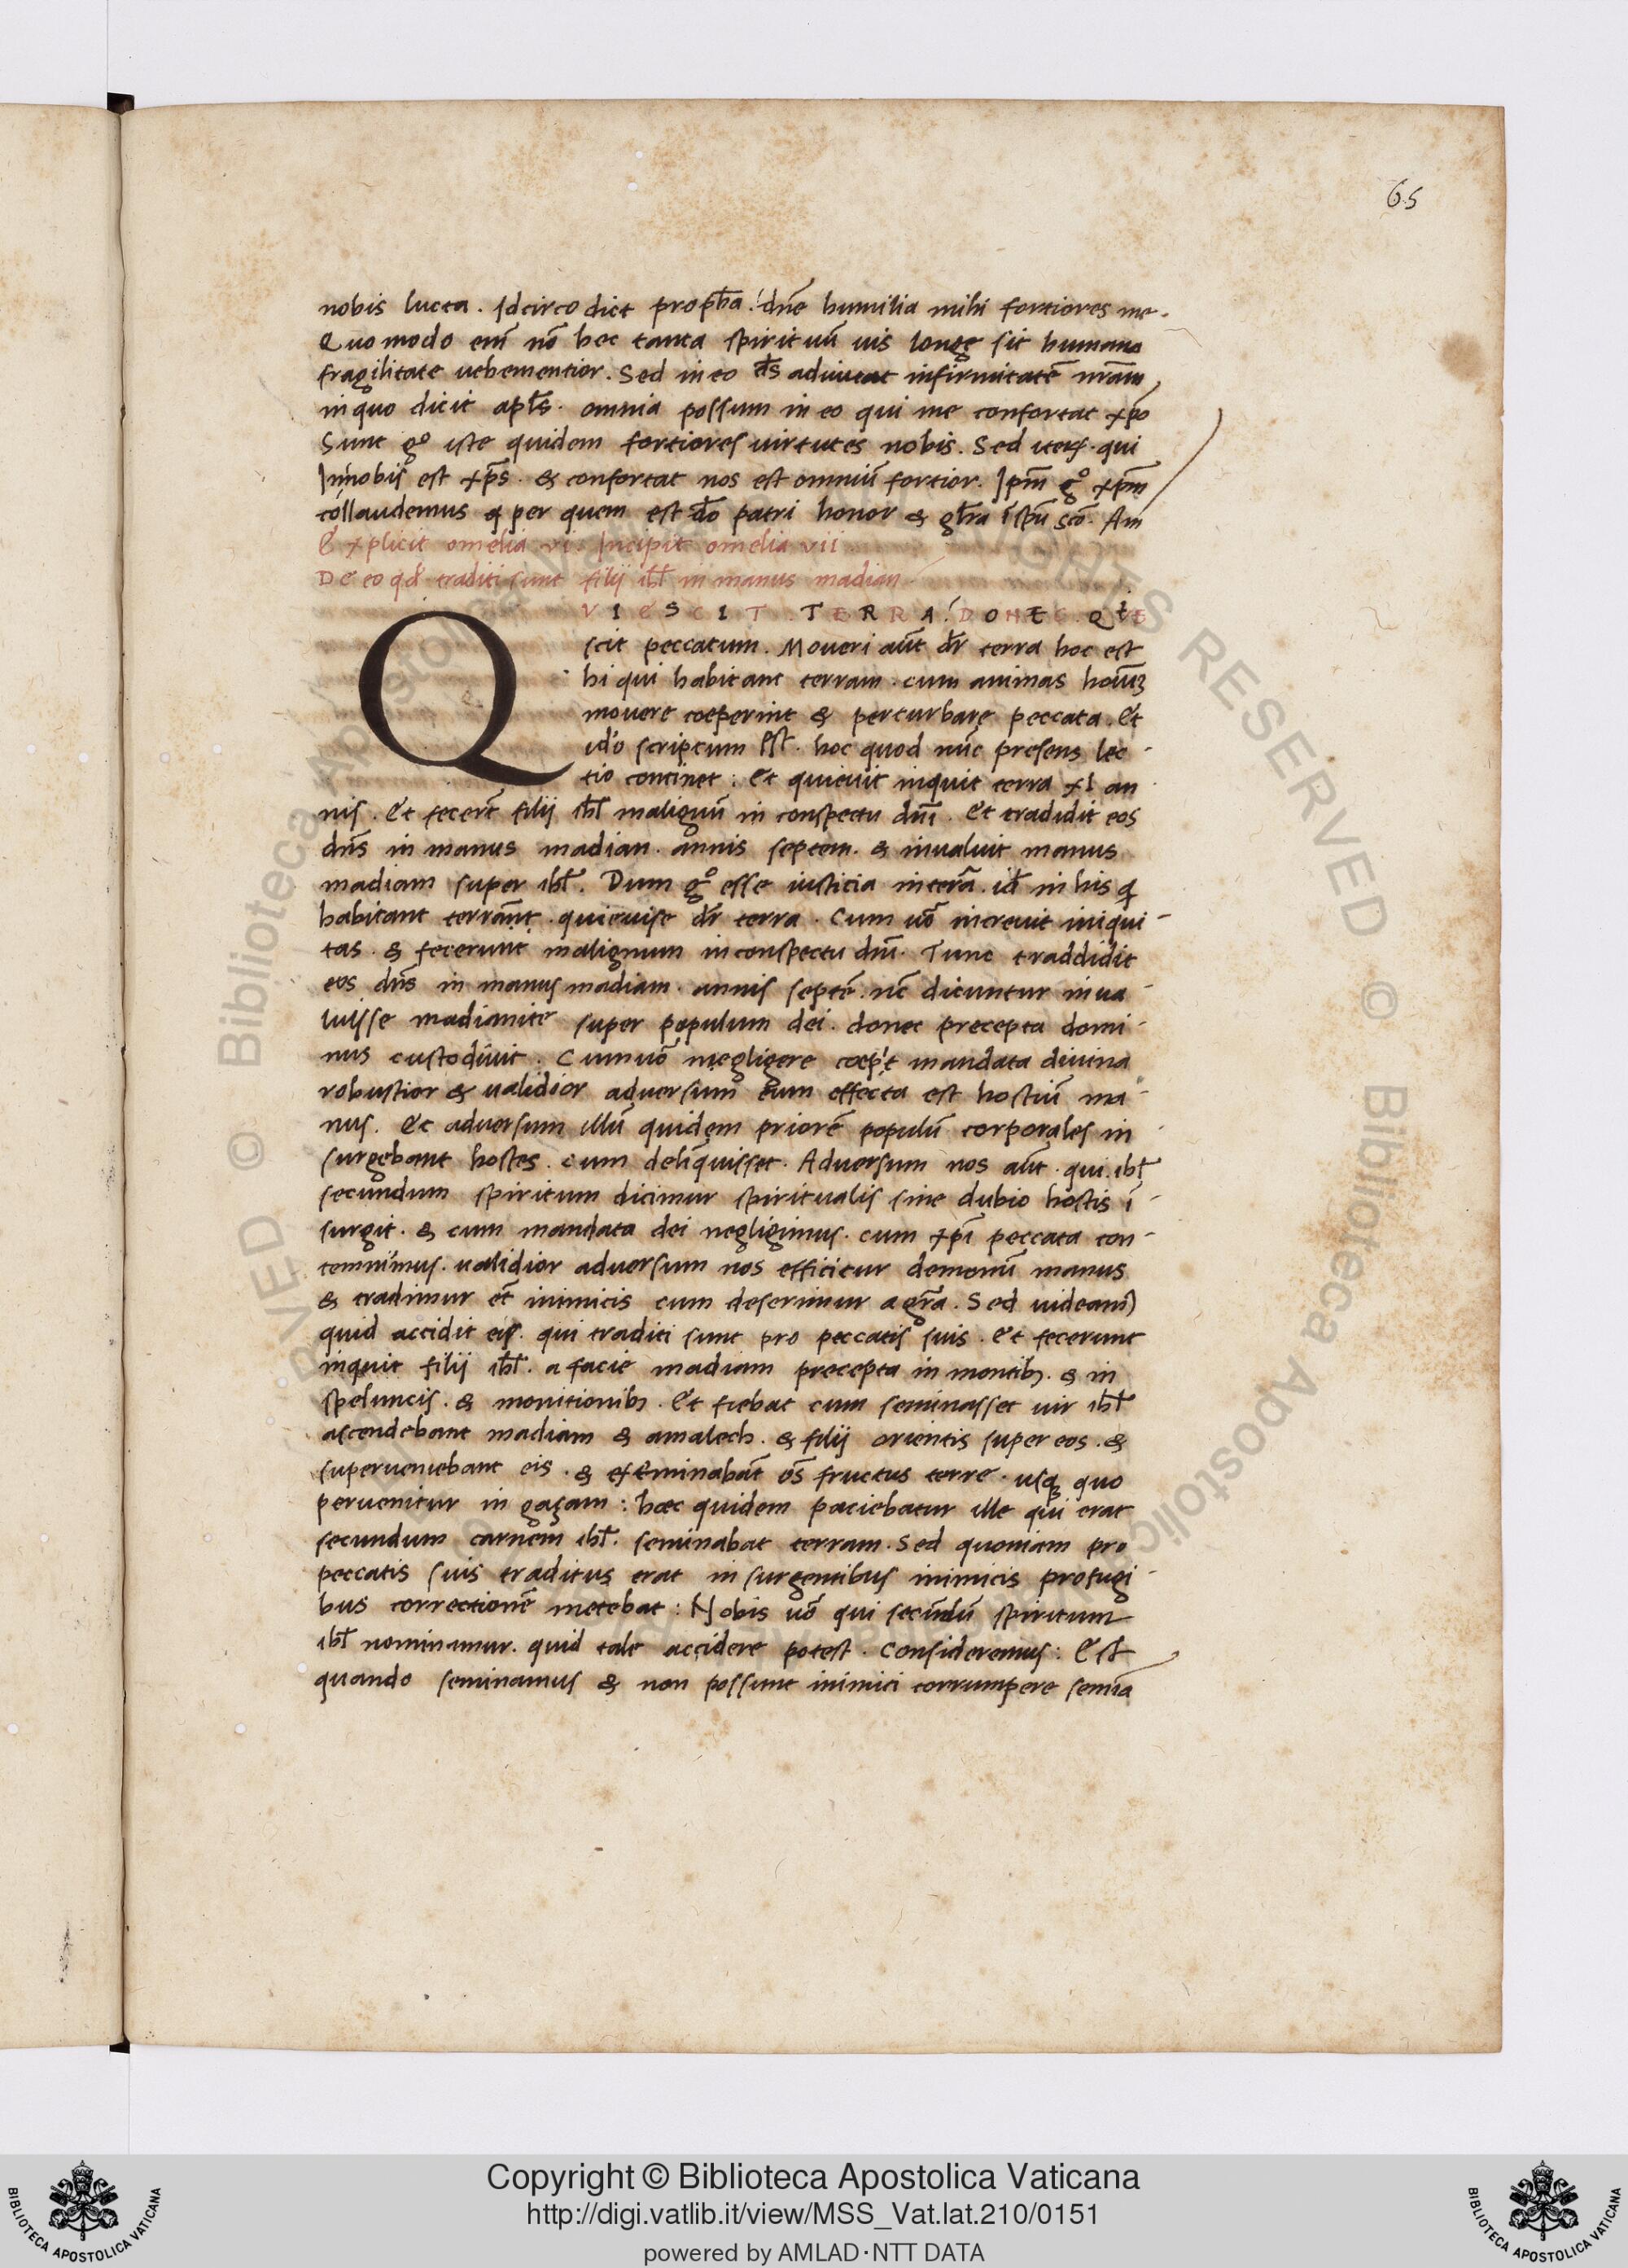 65
nobis lucta. Idcirco dict prop̄ħa. dn̄e humilia mihi fortiores me.
Quomodo enī nō hec tanta spirituū uis longe sit humana
fragilitate uehementior. Sed in eo d̄s adiuuat infirmitatē nrām
in quo dicit apl̄s. omnia possum in eo qui me confortat xp̄o
Sunt gº iste quidem fortiores uirtutes nobis. Sed iteꝝ. qui
In nobis est xp̄s. & confortat nos est omniū fortior. Ipm̄ gº xp̄m
collaudemus q per quem est dō patri honor & gl̄ra ī spū scō. Am
Explicit omelia vi. Incipit omelia vii
De eo qđ traditi sunt filij ihl̄ in manus madian
QVIESCIT TERRA. DONEC. QVIE
scit peccatum. Moueri aūt dr̄ terra hoc est
hi qui habitant terram. cum animas hoīuꝫ
mouere coeperint & perturbare peccata. Et
idō scriptum est. hoc quod nūc presens lec-
tio continet: Et quieuit inquit terra xl an
nis. Et fecert̄ filij ihl̄ malignū in conspectu dn̄i. Et tradidit eos
dn̄s in manus madian. annis septem. & inualuit manus
madiam super ihl̄. Dum gº esse iusticia in terā. id̄ in his q
habitant terram̄t. quieuise dr̄ terra. Cum uō increuit iniqui-
tas. & fecerunt malignum in conspectu dn̄i. Tunc traddidit
eos dn̄s in manus madiam. annis septē. nc̄ dicuntur inua-
luisse madianite super populum dei. donec precepta domi-
nus custodiuit. Cum uō negligere coepit mandata diuina
robustior & ualidior aduersum eum effecta est hostiū ma-
nus. Et aduersum illū quidem priorē populū corporales in-
surgebant hostes. cum deliquisset. Aduersum nos aūt. qui ihl̄
secundum spiritum dicimur spiritualis sine dubio hostis ī-
surgit. & cum mandata dei negligimus. cum xp̄i peccata con-
temnimus. ualidior aduersum nos efficitur demonū manus
& tradimur et̄ inimicis cum deserimur a gr̄a. Sed uideam)
quid accidit eis. qui traditi sunt pro peccatis suis. Et fecerunt
inquit filij ihl̄. a facie madiam precepta in montibꝫ. & in
speluncis. & monitionibꝫ. Et fiebat cum seminasset uir ihl̄
ascendebant madiam & amalech. & filij orientis super eos. &
superueniebant eis. & exterminabāt ōs fructus terre. usqꝫ quo
peruenitur in gazam: hæc quidem paciebatur ille qui erat
secundum carnem ihl̄. seminabat terram. Sed quoniam pro
peccatis suis traditus erat insurgentibus inimicis profugi-
bus correctionē metebat: Nobis uō qui secundū spiritum
ihl̄ nominamur. quid tale accidere potest. Consideremus: Est
quando seminamus & non possunt inimici corrumpere semīa
Copyright © Biblioteca Apostolica Vaticana
http://digi.vatlib.it/view/MSS_Vat.lat.210/0151
powered by AMLAD·NTT DATA
BIBLIOTECA APOSTOLICA VATICANA
BIBLIOTECA APOSTOLICA VATICANA